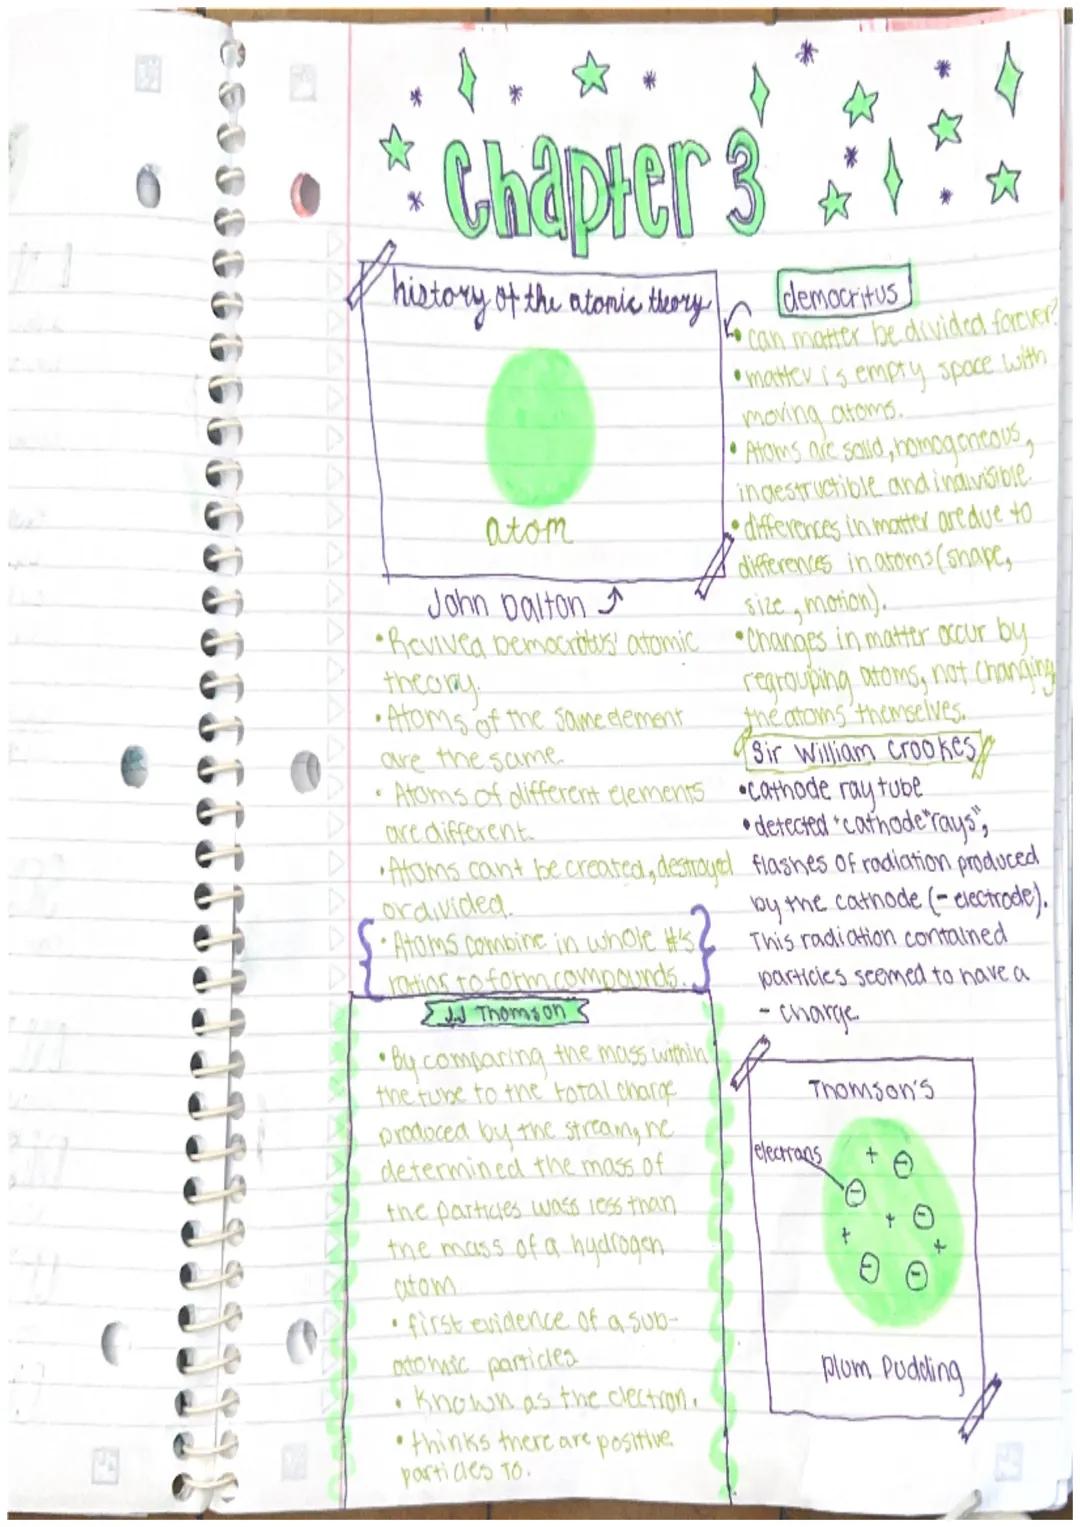 Chapter 3
history of the atomic theory
atom
John Dalton
• Revived Democritus' atomic
theory.
• Atoms of the same element
are the same.
• Atoms of different elements
are different.
• Atoms cant be created, destroyed
or divided.
• Atoms combine in whole #'s
ratios to form compounds.
J.J Thomson
• By comparing the mass within
the tube to the total charge
produced by the stream, he
determined the mass of
the particles wass less than
the mass of a hydrogen
atom
• first evidence of a sub-
atomic particles
• Known as the electron.
• thinks there are positive
particles to.
democritus
• can matter be divided forever?
• matter is empty space with
moving atoms.
• Atoms are solid, homogeneous,
indestructible and indivisible.
• differences in matter are due to
differences in atoms (shape,
size, motion).
• Changes in matter occur by
regrouping atoms, not changing
the atoms themselves.
Sir William Crookes
• cathode ray tube
• detected "cathode "rays",
flashes of radiation produced
by the cathode (- electrode).
This radiation contained
particles seemed to have a
- charge
Thomson's
electrons
+ -
-
+ -
+ +
- -
plum Pudding